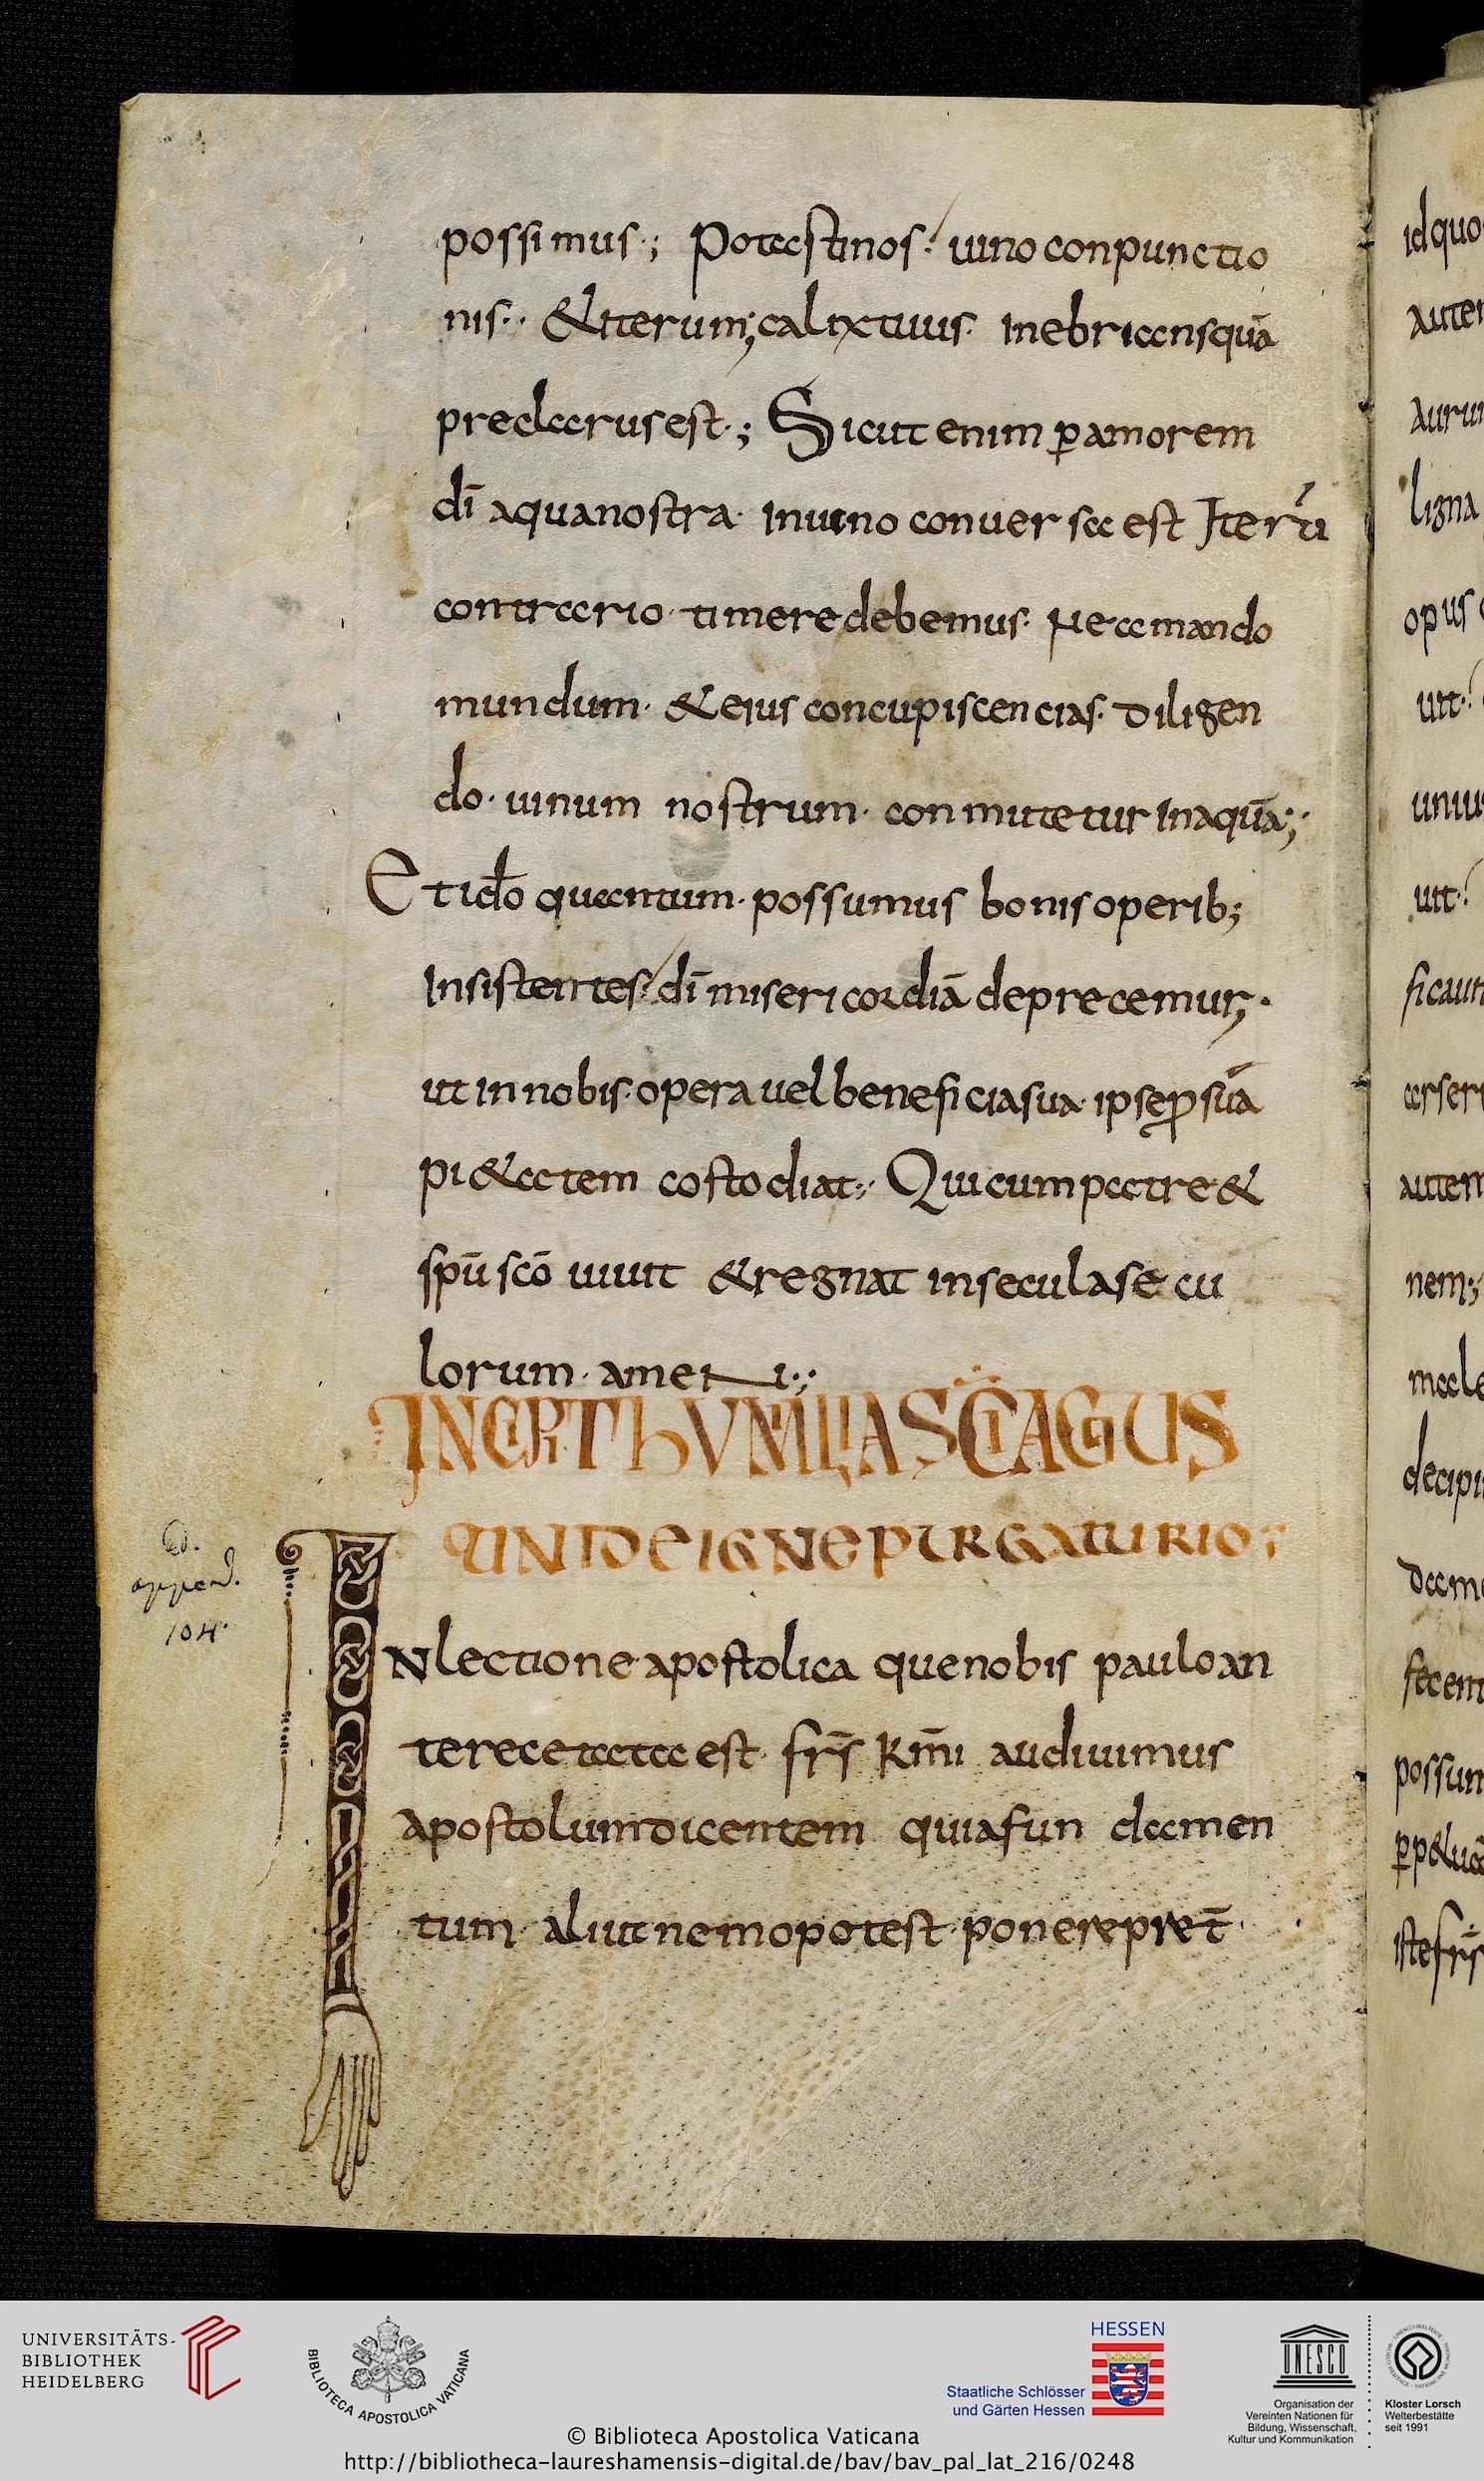 possimus·; Potastinos·/ uino conpunctio
nis·· &iterum; calix tuus· inebriansquā
preclarus est·; Sicut enim ꝑ amorem
dī aqua nostra· inuino conuersa est Iterūi
contrario· timere debemus· Ne amando
mundum· & eius concupiscencias· diligen
do· uinum nostrum· conmutetur inaquā;·
Et idō quantum· possumus bonis operib;
Insistentes·/ dī misericordiā deprecemur;·
ut in nobis· opera uel beneficia sua· ipse ꝓ suā
pi&atem costodiat·;· Qui cum patre &
spū scō uiuit & regnat in secula secu
lorum· amen·;·
INCIPIT hUMILIA SCI AGUS
TINI DE IGNE PURGATURIO·;
IN lectione apostolica que nobis paulo an
te recetata est· frs̄ Km̄i audiuimus
apostolum dicentem quia fundamen
tum· aliut nemo potest· ponere pret̄·
Ed.
append.
104.
idquo
auter
auru
ligna
opus
uit·/
uniu
uit·/
ficaut
arseri
autem
nem·;
male
decipi
dam
fecent
possun
ꝑp&ua
iste frs̄
UNIVERSITÄTS-
BIBLIOTHEK
HEIDELBERG
BIBLIOTECA APOSTOLICA VATICANA
HESSEN
Staatliche Schlösser
und Gärten Hessen
UNESCO
Organisation der
Vereinten Nationen für
Bildung, Wissenschaft,
Kultur und Kommunikation
Kloster Lorsch
Welterbestätte
seit 1991
© Biblioteca Apostolica Vaticana
http://bibliotheca-laureshamensis-digital.de/bav/bav_pal_lat_216/0248